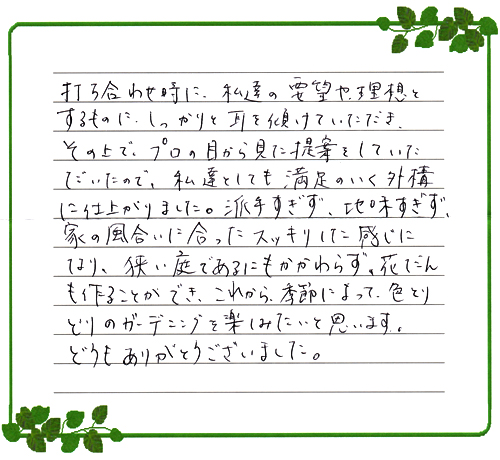 打ち合わせ時に、私達の要望や、理想と
するものに、しっかりと耳を傾けていただき、
その上で、プロの目から見た提案をしていた
だいたので、私達としても満足のいく外構
に仕上がりました。派手すぎず、地味すぎず、
家の風合いに合ったスッキリした感じに
なり、狭い庭であるにもかかわらず、花だん
も作ることができ、これから、季節によって、色とり
どりのガーデニングを楽しみたいと思います。
どうもありがとうございました。